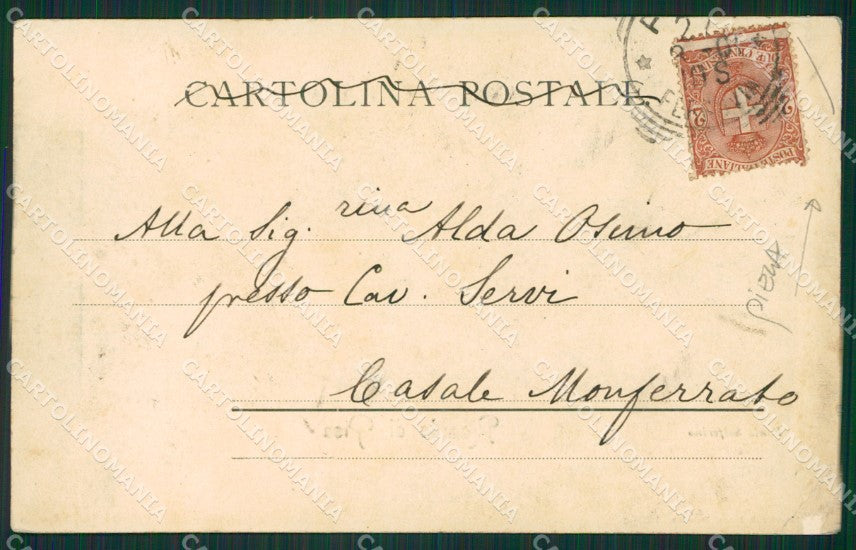 CARTOLINA POSTALE
Alla Sig.rina Alda Osimo
presso Cav. Servi
Casale Monferrato
piega
POSTE ITALIANE
CARTOLINOMANIA